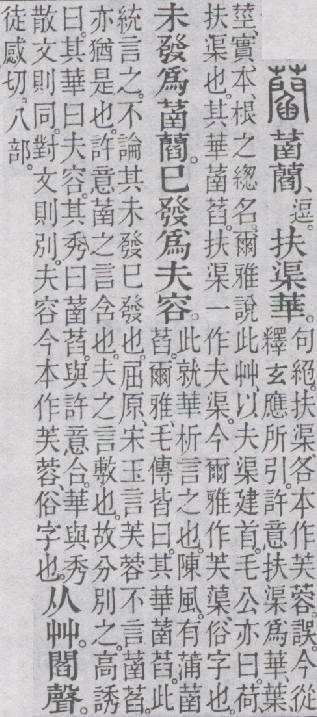 蕳菡蕳、逗。扶渠華。句絕。扶渠、各本作芙蓉、誤。今從釋玄應所引。許意扶渠爲華、葉、
莖、實、本、根之緫名。爾雅說此艸、以夫渠建首。毛公亦曰、荷、
扶渠也。其華菡萏。扶渠一作夫渠。今爾雅作芙蕖、俗字也。
未發爲菡蕳。巳發爲夫容。此就華析言之也。陳風。有蒲菡萏。爾雅、毛傳皆曰。其華菡萏。此
統言之。不論其未發巳發也。屈原、宋玉言芙蓉不言菡萏。
亦猶是也。許意菡之言含也。夫之言敷也。故分別之。高誘
曰。其華曰夫容。其秀曰菡萏。與許意合。華與秀
散文則同。對文則別。夫容今本作芙蓉、俗字也。从艸。閻聲。
徒感切。八部。